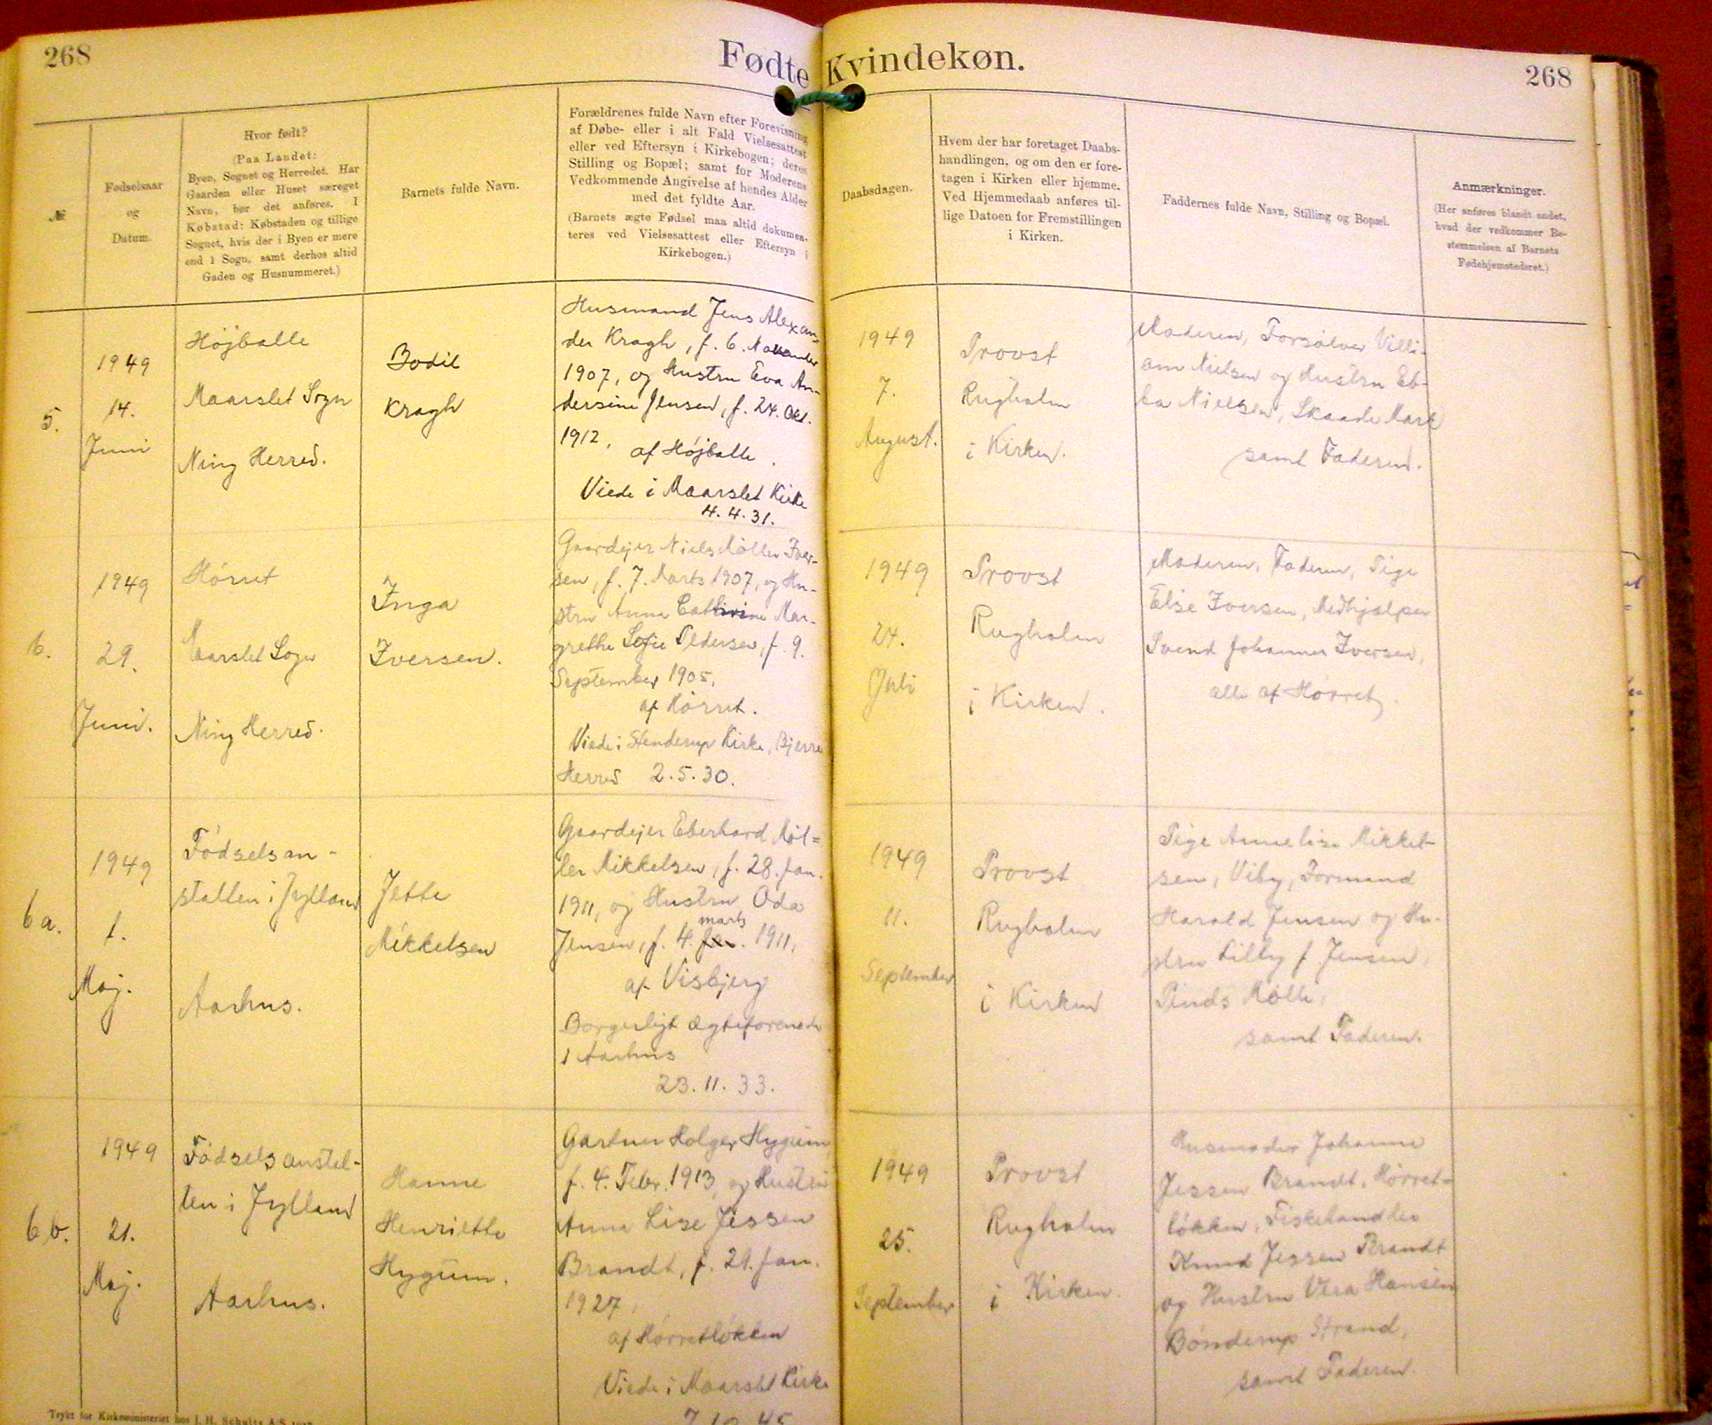 268
Fødte Kvindekøn.
268
№
Fødselsaar
og
Datum.
Hvor født?
(Paa Landet:
Byen, Sognet og Herredet. Har
Gaarden eller Huset særeget
Navn, bør det anføres. I
Købstad: Købstaden og tillige
Sognet, hvis der i Byen er mere
end 1 Sogn, samt derhos altid
Gaden og Husnummeret.)
Barnets fulde Navn.
Forældrenes fulde Navn efter Forevisning
af Døbe- eller i alt Fald Vielsesattest
eller ved Eftersyn i Kirkebogen; deres
Stilling og Bopæl; samt for Moderens
Vedkommende Angivelse af hendes Alder
med det fyldte Aar.
(Barnets ægte Fødsel maa altid dokumen-
teres ved Vielsesattest eller Eftersyn i
Kirkebogen.)
Daabsdagen.
Hvem der har foretaget Daabs-
handlingen, og om den er fore-
tagen i Kirken eller hjemme.
Ved Hjemmedaab anføres til-
lige Datoen for Fremstillingen
i Kirken.
Faddernes fulde Navn, Stilling og Bopæl.
Anmærkninger.
(Her anføres blandt andet,
hvad der vedkommer Be-
stemmelsen af Barnets
Fødehjemstedsret.)
5.
1949
14.
Juni
Højballe
Maarslet Sogn
Ning Herred.
Bodil
Kragh
Husmand Jens Alexan-
der Kragh, f. 6. November
1907, og Hustru Eva An-
dersine Jensen, f. 24. Okt.
1912.
af Højballe.
Viede i Maarslet Kirke
4.4.31.
1949
7.
August.
Provst
Rugholm
i Kirken.
Moderen, Forsølver Villi-
am Nielsen og Hustru Eb-
ba Nielsen, Skaade Mark
samt Faderen.
6.
1949
29.
Juni.
Hørret
Maarslet Sogn
Ning Herred.
Inga
Iversen.
Gaardejer Niels Møller Iver-
sen, f. 7. Marts 1907, og Hu-
stru Anna Cathrine Mar-
grethe Sofie Pedersen, f. 9.
September 1905.
af Hørret.
Viede i Stenderup Kirke, Bjerre
Herred 2.5.30.
1949
24.
Juli
Provst
Rugholm
i Kirken.
Moderen, Faderen, Pige
Else Iversen, Medhjælper
Svend Johannes Iversen,
alle af Hørret.
6a.
1949
1.
Maj.
Fødselsan-
stalten i Jylland
Aarhus.
Jette
Mikkelsen
Gaardejer Eberhard Møl-
ler Mikkelsen, f. 28. Jan.
1911, og Hustru Oda
marts
Jensen, f. 4. Jan. 1911,
af Visbjerg
Borgerligt ægteforenede
i Aarhus
23.11.33.
1949
11.
September
Provst
Rugholm
i Kirken
Pige Annelise Mikkel-
sen, Viby, Formand
Harald Jensen og Hu-
stru Lilly f Jensen,
Pinds Mølle,
samt Faderen.
6b.
1949
21.
Maj.
Fødselsanstal-
ten i Jylland
Aarhus.
Hanne
Henriette
Hygum.
Gartner Holger Hygum,
f. 4. Febr. 1913, og Hustru
Anna Lise Jessen
Brandt, f. 29. Jan.
1927,
af Hørretløkken
Viede i Maarslet Kirke
7.10.45
1949
25.
September
Provst
Rugholm
i Kirken.
Husmoder Johanne
Jessen Brandt, Hørret-
løkken, Fiskehandler
Knud Jessen Brandt
og Hustru Vera Hansen
Bønderup Strand,
samt Faderen.
Trykt for Kirkeministeriet hos J. H. Schultz A/S